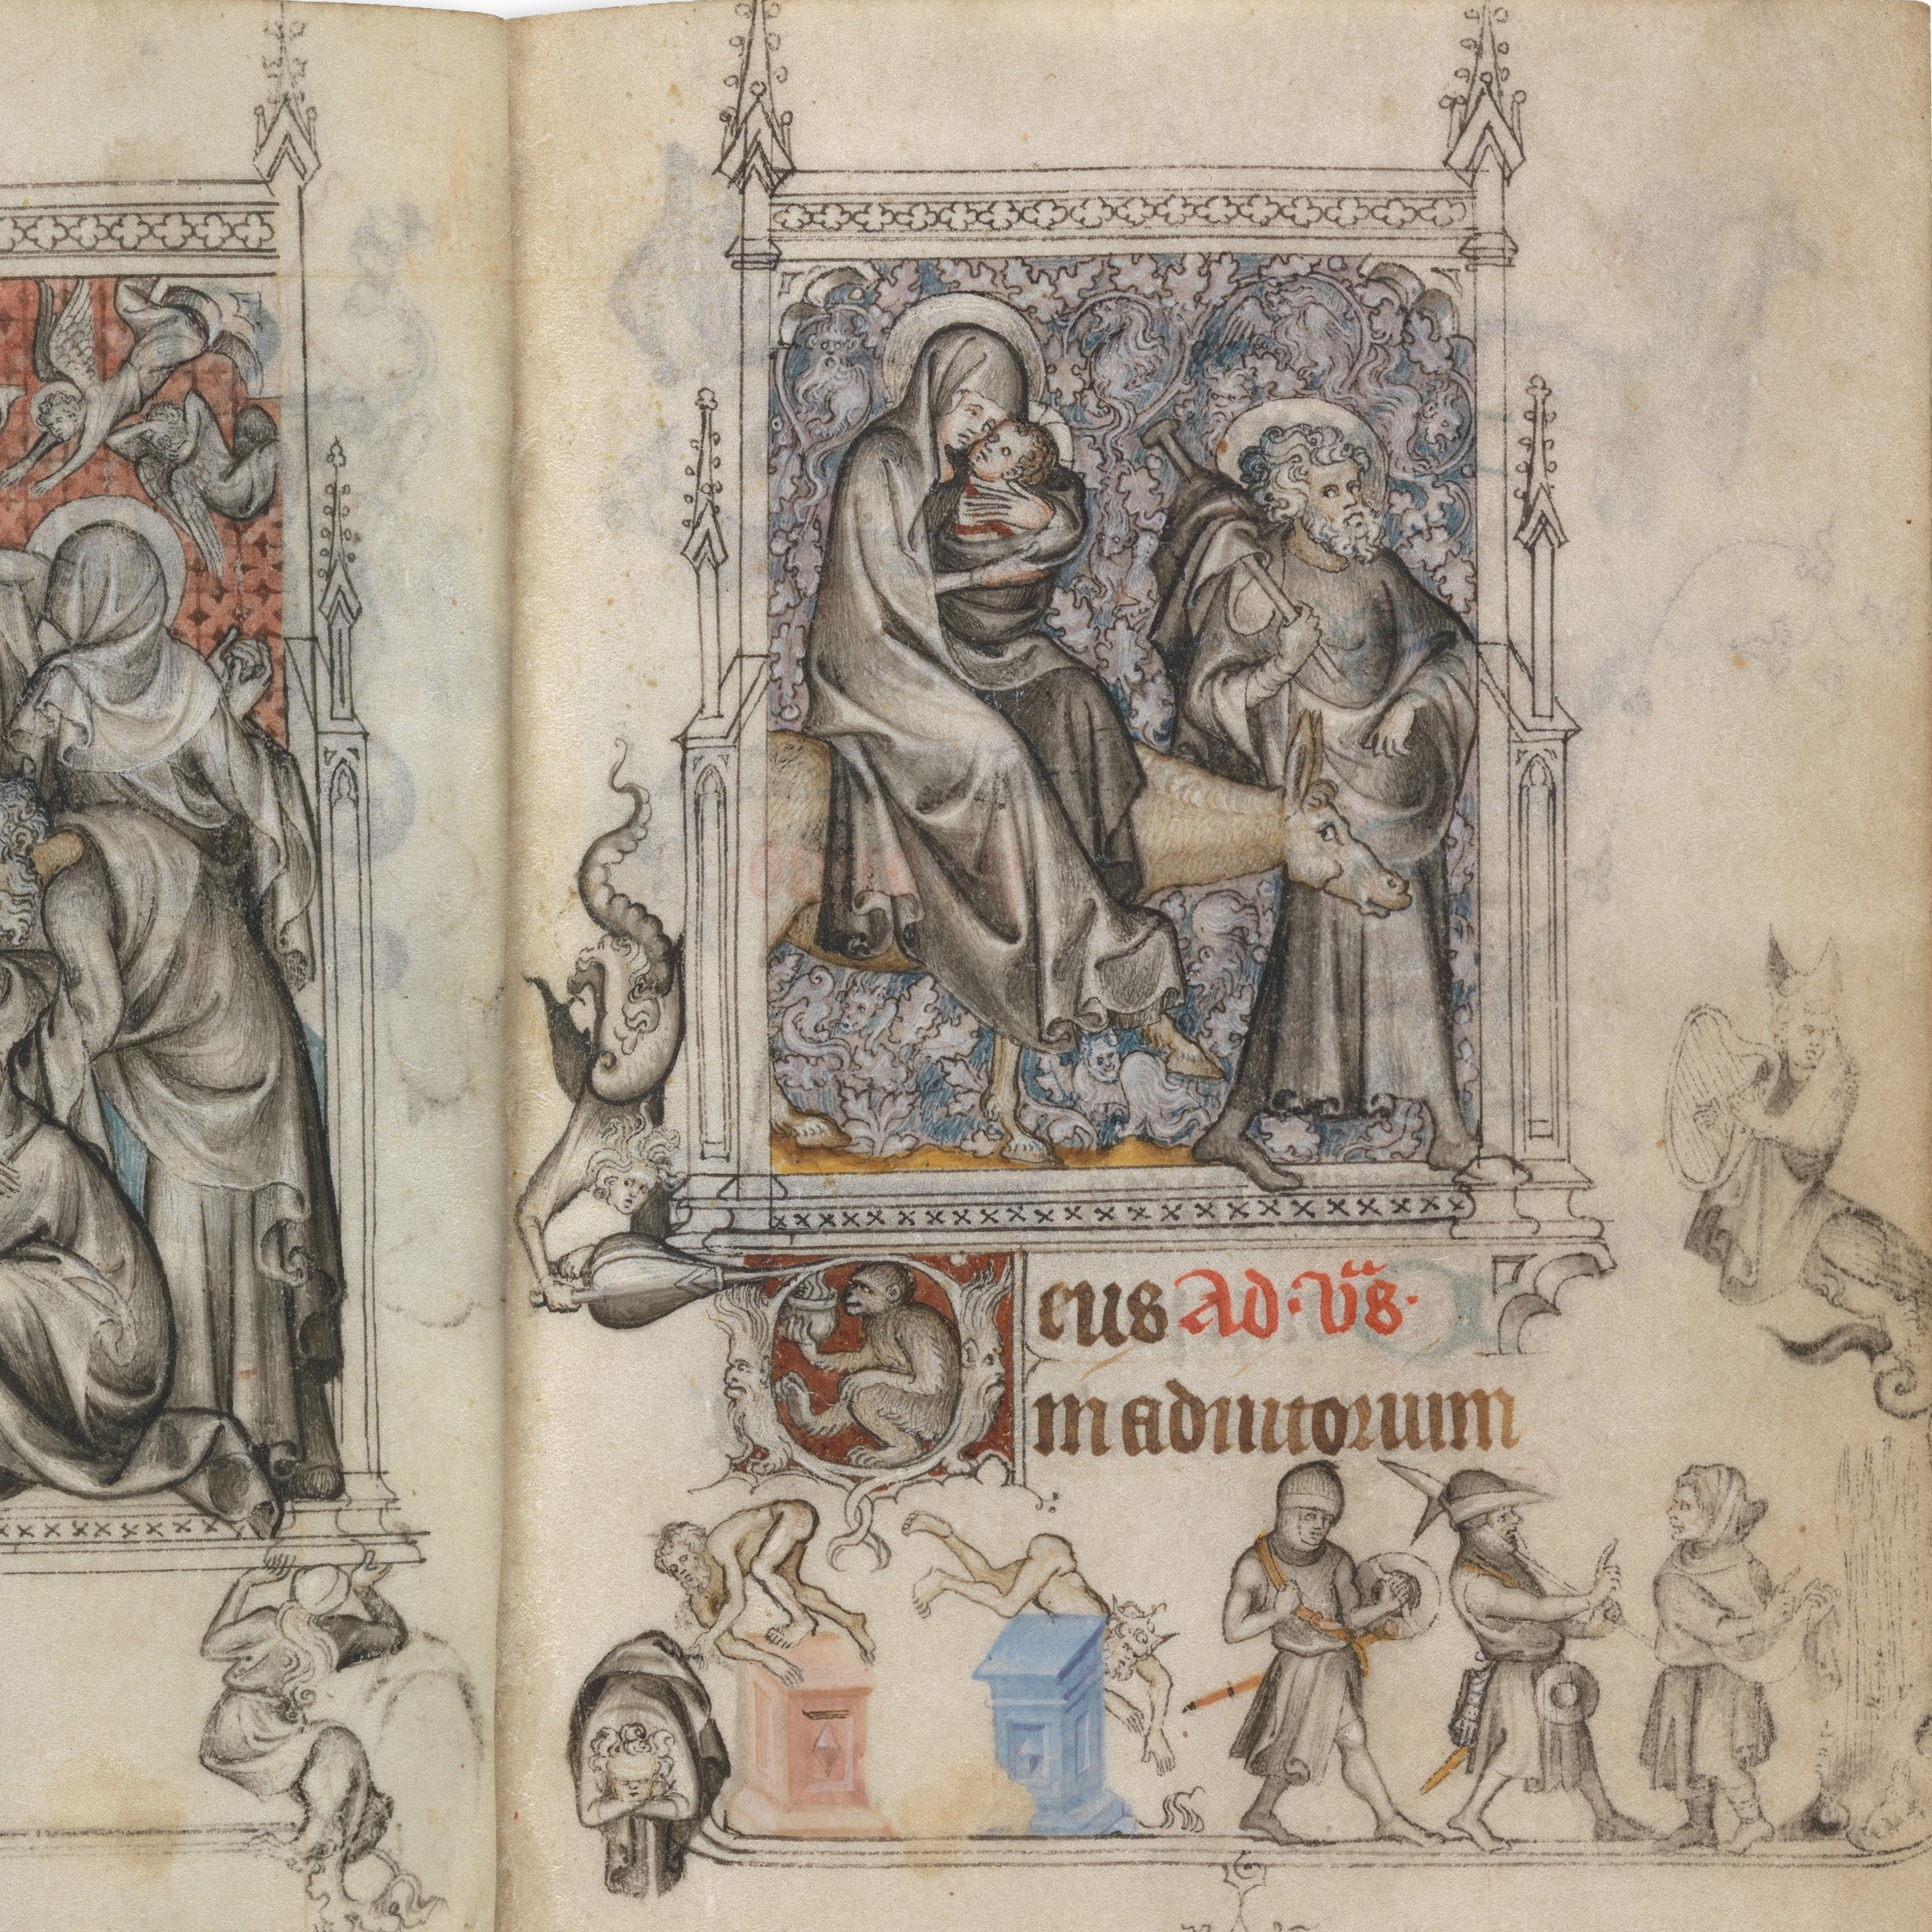 Deus Ad·vẽs·
m adiutorium